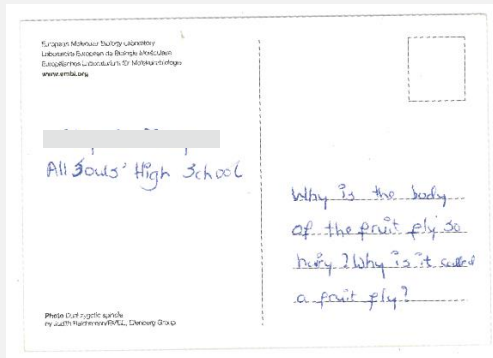 European Molecular Biology Laboratory
Laboratoire Européen de Biologie Moléculaire
Europäisches Laboratorium für Molekularbiologie
www.embl.org
All Souls' High School
Why is the body
of the fruit fly so
hairy? Why is it called
a fruit fly?
Photo Dual zygotic spindle
by Judith Reichmann/EMBL, Ellenberg Group